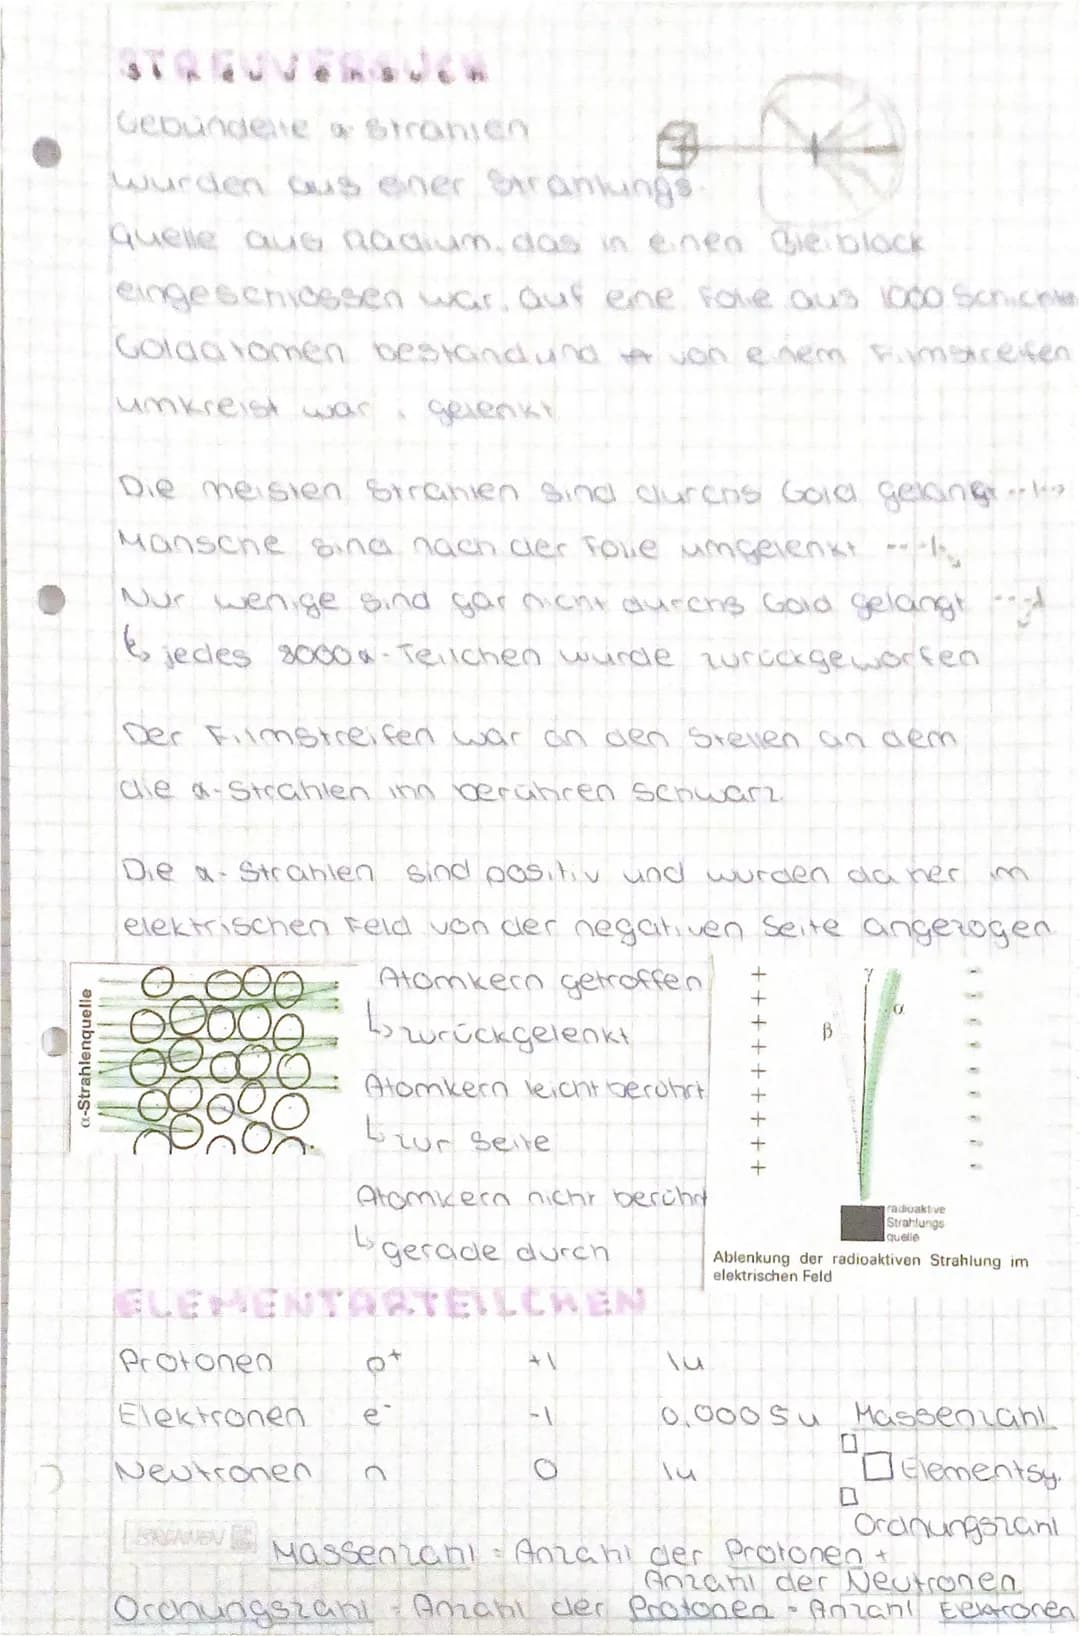 STREUVERSUCH
Gebündelte α Strahlen
wurden aus einer Strahlungs-
quelle aus Radium, das in einen Bleiblock
eingeschlossen war, auf eine Folie aus 1000 Schichten
Goldatomen bestand und von einem Filmstreifen
umkreist war, gelenkt
Die meisten Strahlen sind durchs Gold gelangt
Mansche sind nach der Folie umgelenkt
Nur wenige sind gar nicht durchs Gold gelangt
↳ jedes 8000 α-Teilchen wurde zurückgeworfen
Der Filmstreifen war an den Stellen an dem
die α-Strahlen ihn berühren schwarz
Die α-Strahlen sind positiv und wurden daher im
elektrischen Feld von der negativen Seite angezogen
α-Strahlenquelle
Atomkern getroffen
↳ zurückgelenkt
Atomkern leicht berührt
↳ zur Seite
Atomkern nicht berührt
↳ gerade durch
+ + + + + + + + +
β
γ
α
- - - - - - - - -
radioaktive
Strahlungs
quelle
Ablenkung der radioaktiven Strahlung im
elektrischen Feld
ELEMENTARTEILCHEN
Protonen p+ +1 1u
Elektronen e- -1 0,0005u
Neutronen n 0 1u
Massenzahl
Elementsy.
Ordnungszahl
Massenzahl = Anzahl der Protonen +
Anzahl der Neutronen
Ordnungszahl = Anzahl der Protonen = Anzahl Eelktronen